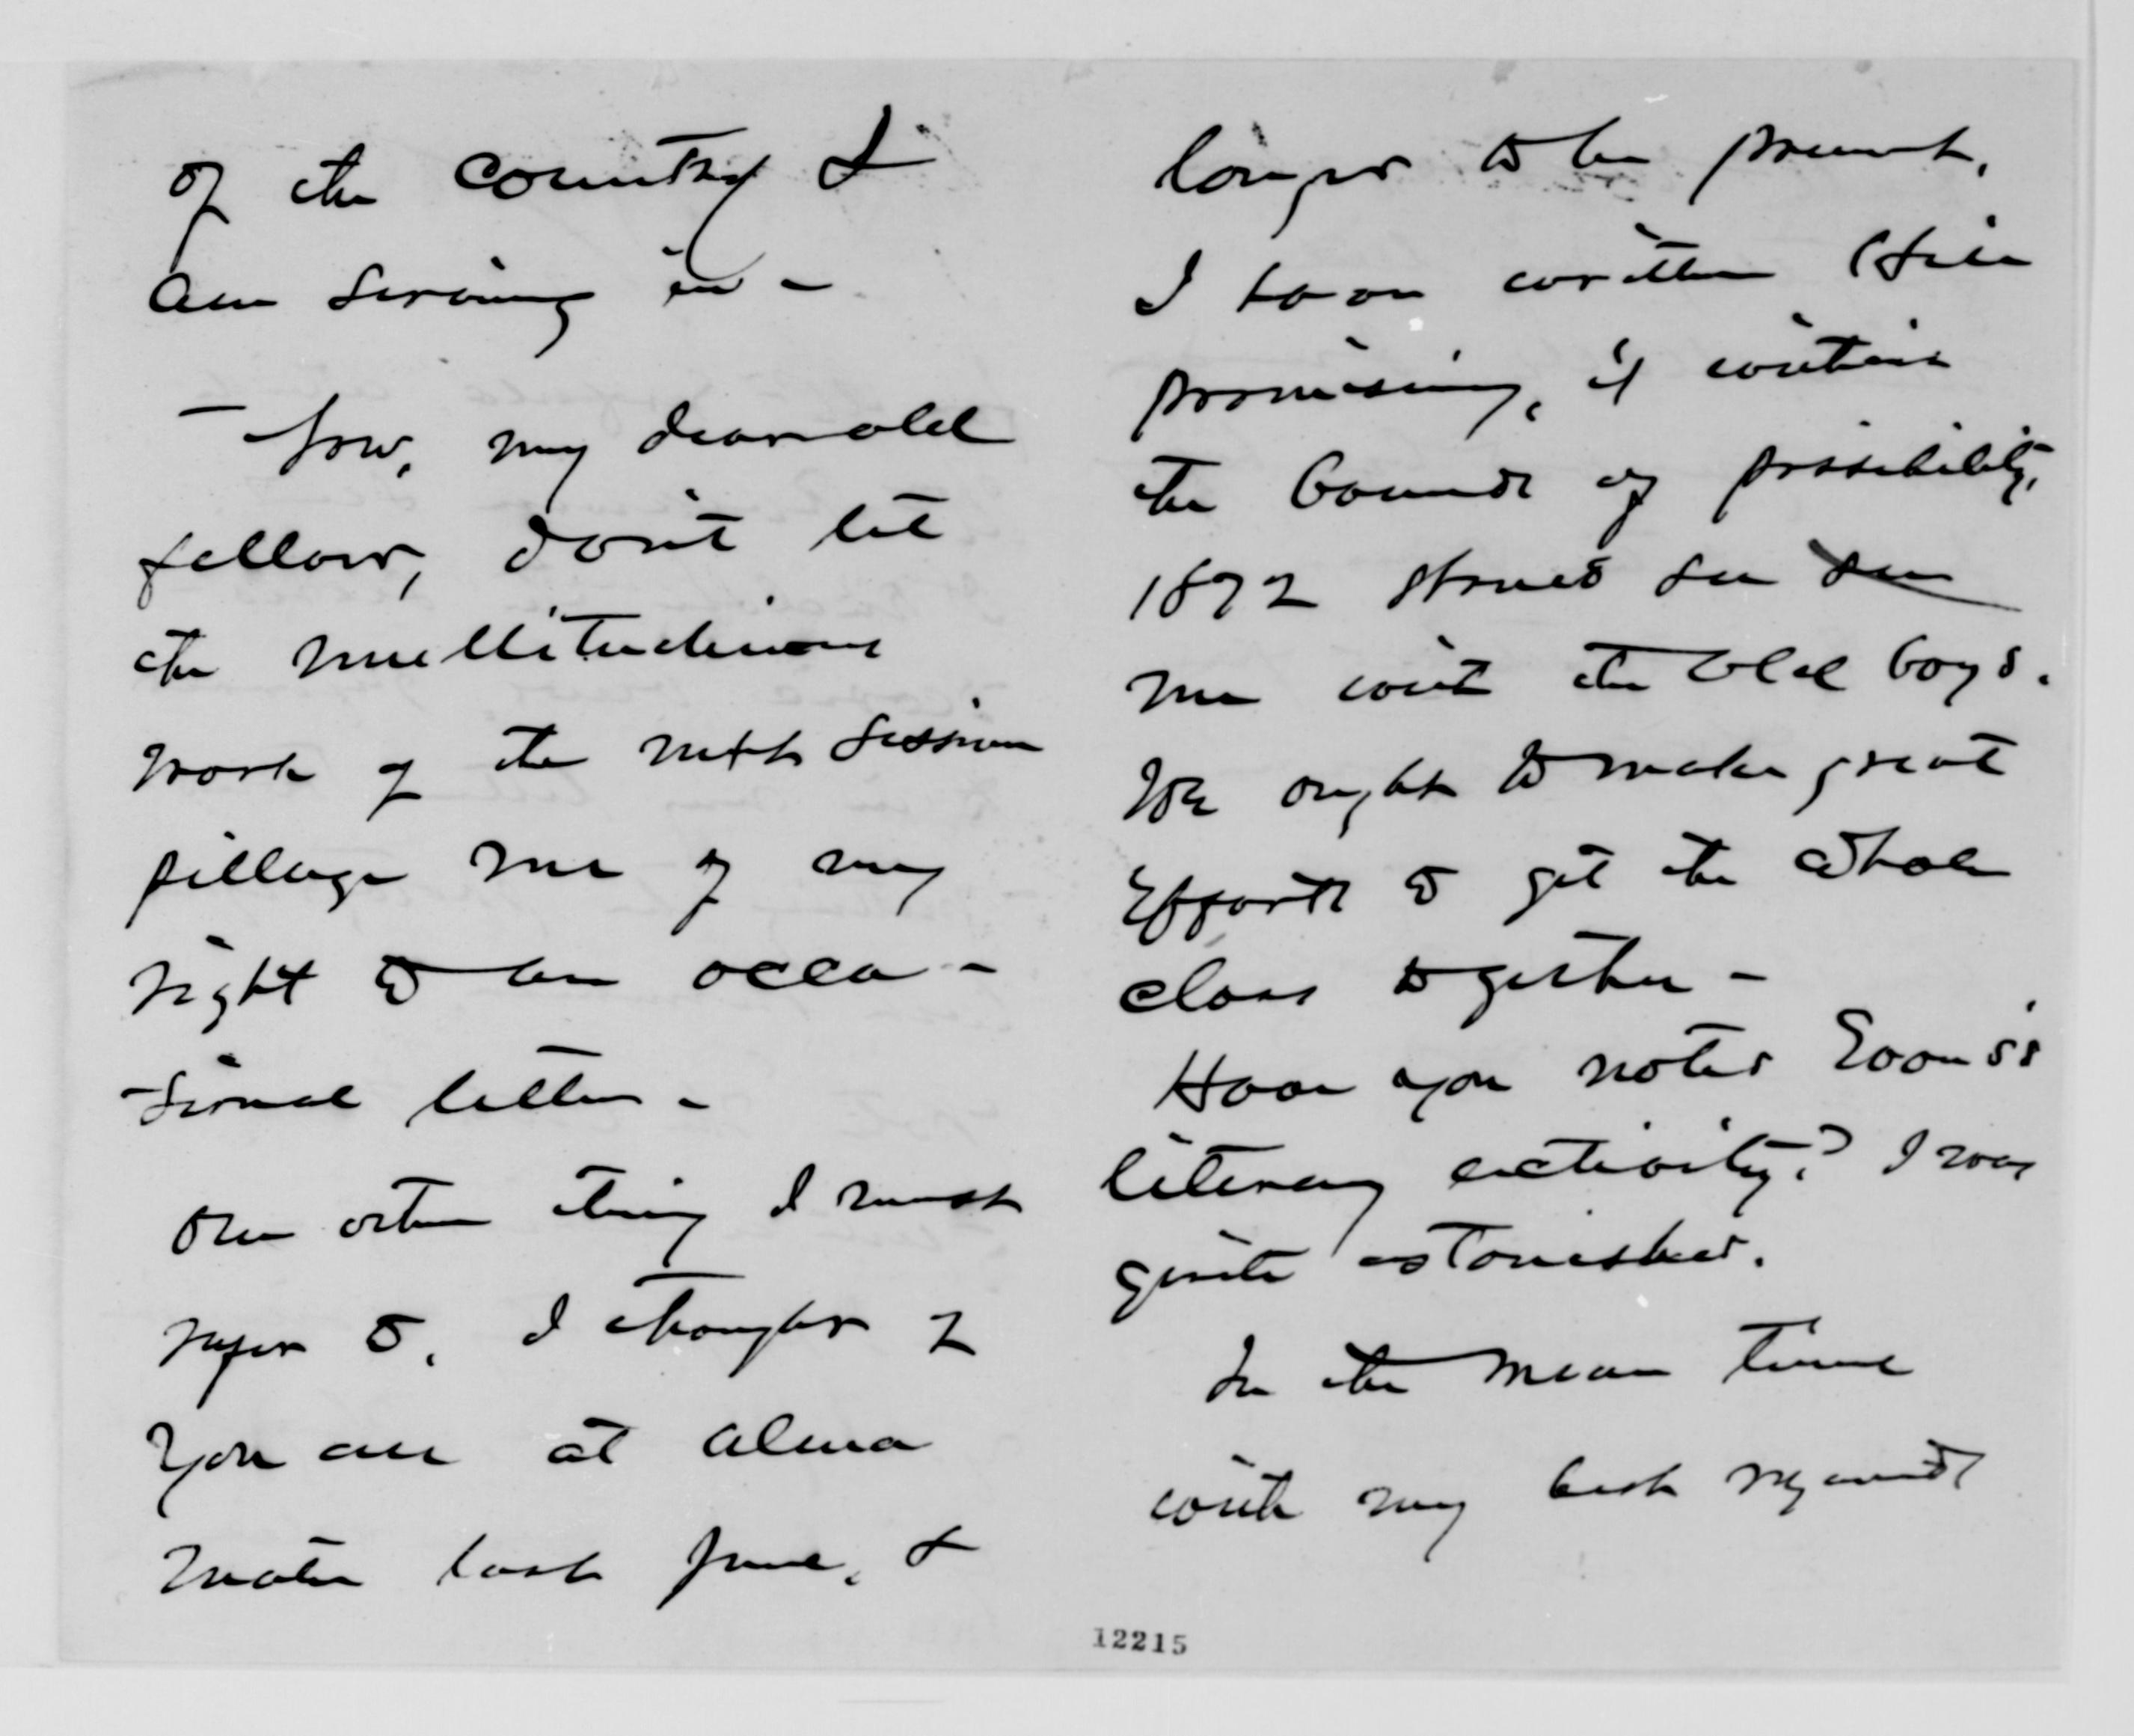 of the country I
am serving in -
- Now, my dear old
fellow, don't let
the multitudinous
work of the next session
pillage me of my
right to an occa -
sional letter -
One other thing I must
refer to. I thought of
you all at Alma
Mater last June, &
longed to be present.
I have written Hill
promising, if within
the bounds of possibility,
1872 should see see
me with the old boys.
We ought to make great
efforts to get the whole
class together -
Have you noted
literary activity? I was
quite astonished.
In the mean time
with my best regards
12215